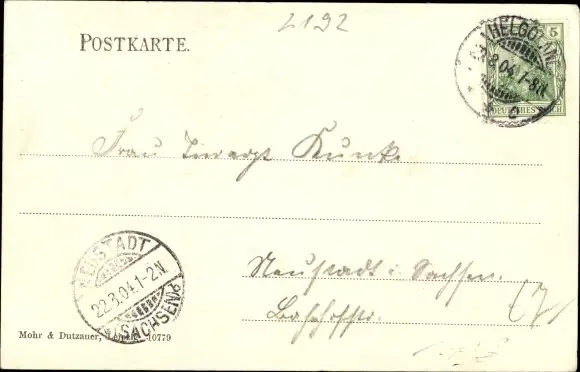 2192
POSTKARTE.
HELGOLAND
8.04.1-8N.
5
DEUTSCHES REICH
Frau Kunk.
Neustadt i. Sachsen.
Bahnhofstr.
NEUSTADT
22.8.04.1-2N.
(SACHSEN)
Mohr & Dutzauer, Leipzig 10779